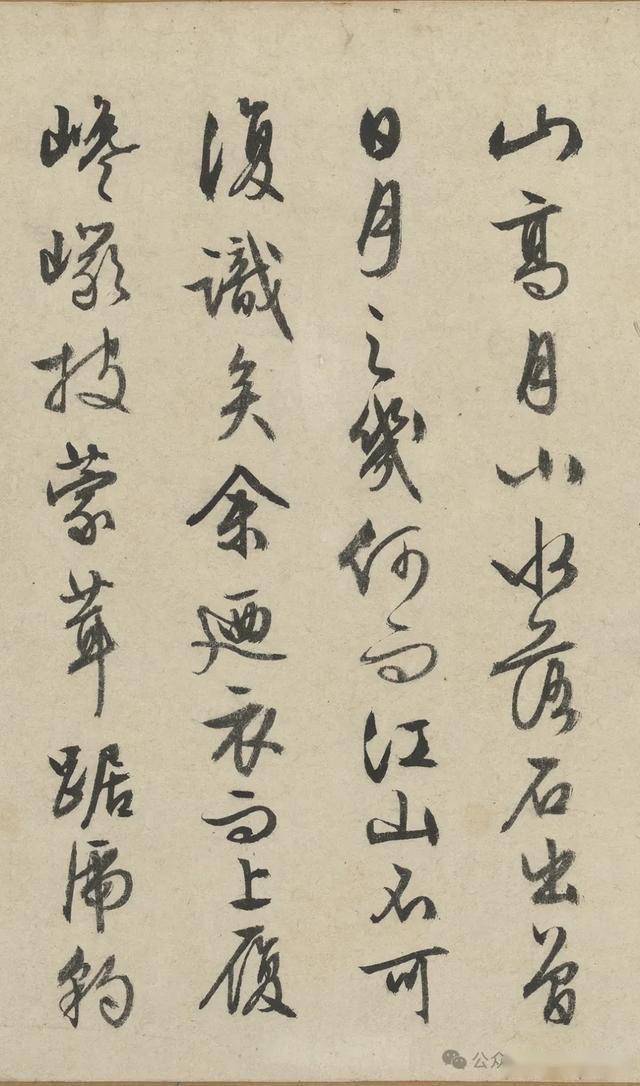 山高月小水落石出曾
日月之幾何而江山不可
復識矣余迺衣而上履
巉巖披蒙茸踞虎豹
公众